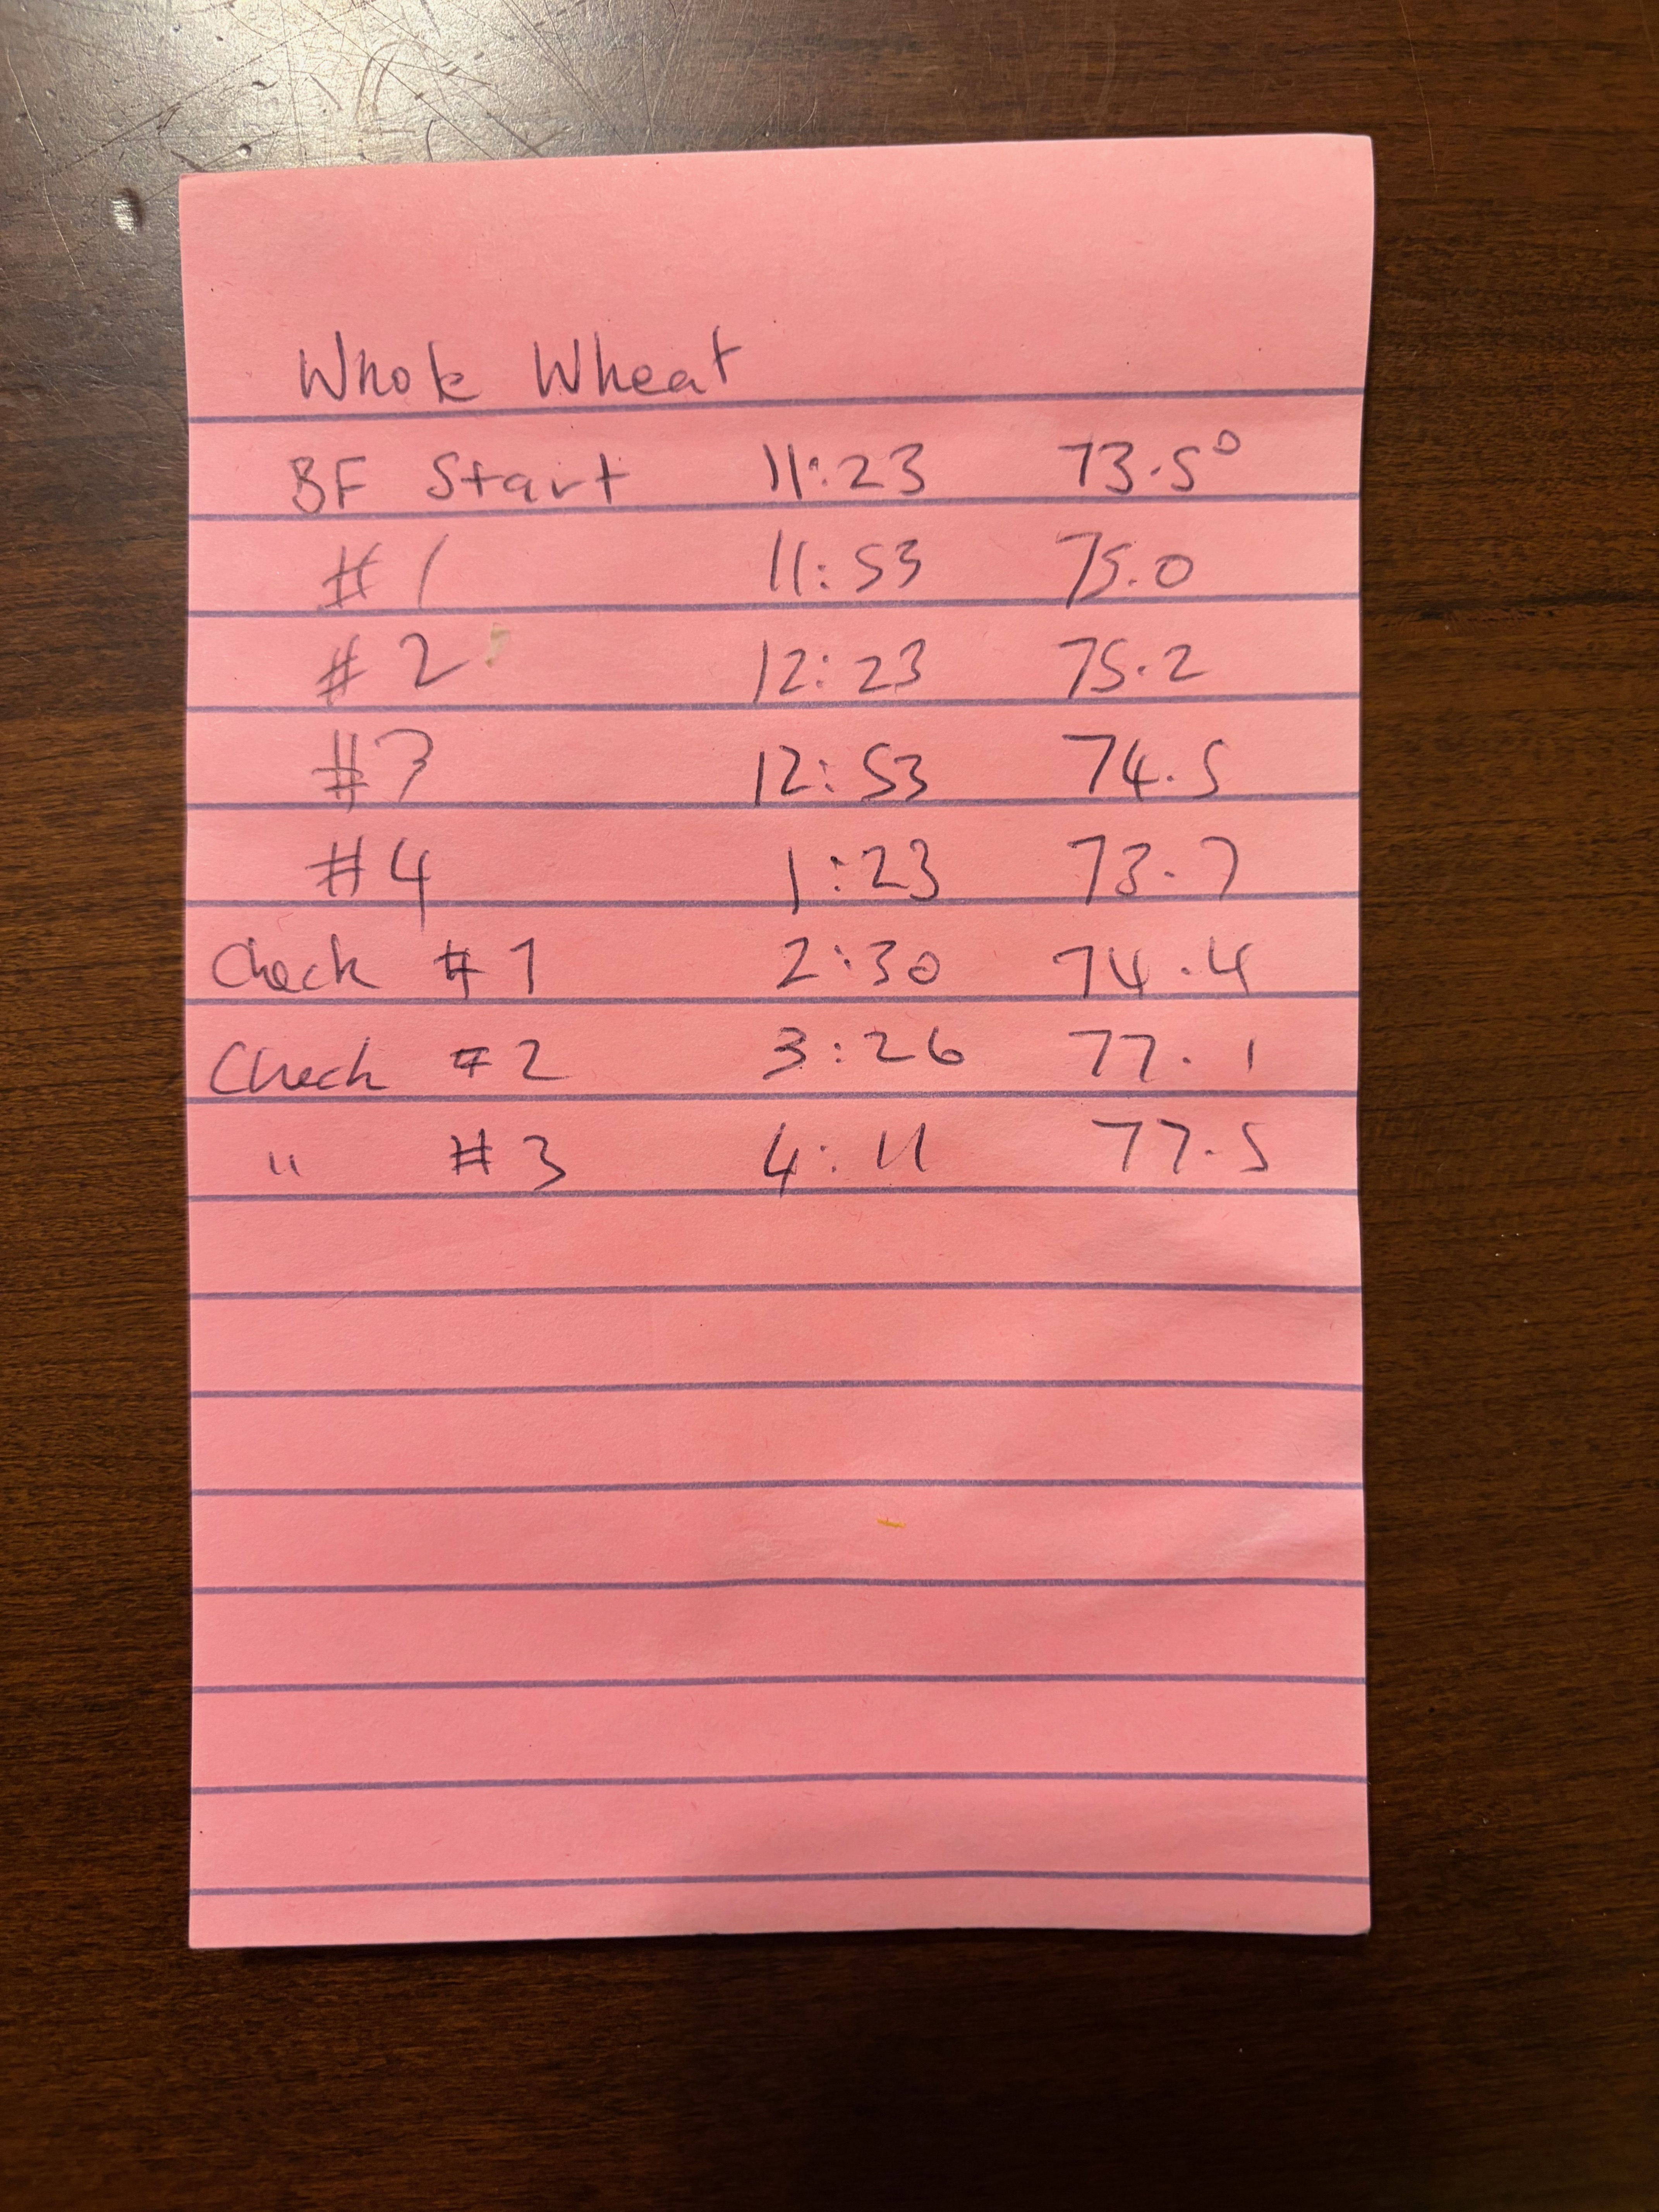 Whole Wheat
BF Start 11:23 73.5°
#1 11:53 75.0
#2 12:23 75.2
#3 12:53 74.5
#4 1:23 73.7
Check #1 2:30 74.4
Check #2 3:26 77.1
" #3 4:11 77.5